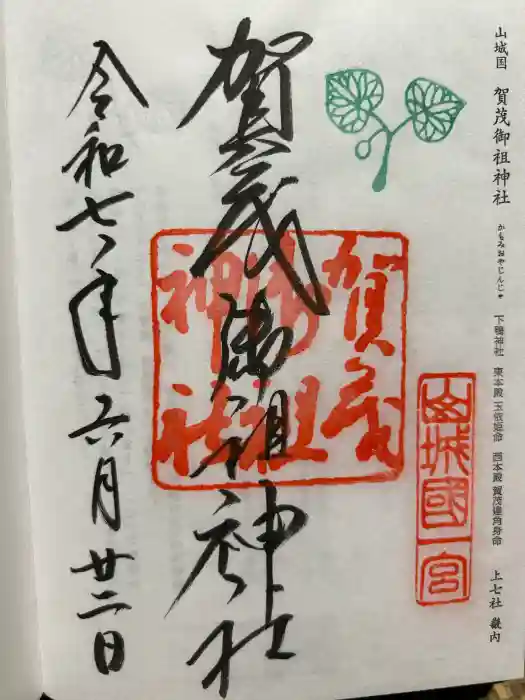 山城国 賀茂御祖神社 かもみおやじんじゃ 下鴨神社 東本殿 玉依姫命 西本殿 賀茂建角身命 上七社 畿内
山城國一宮
賀茂御祖神社
賀茂御祖神社
令和七年六月廿二日